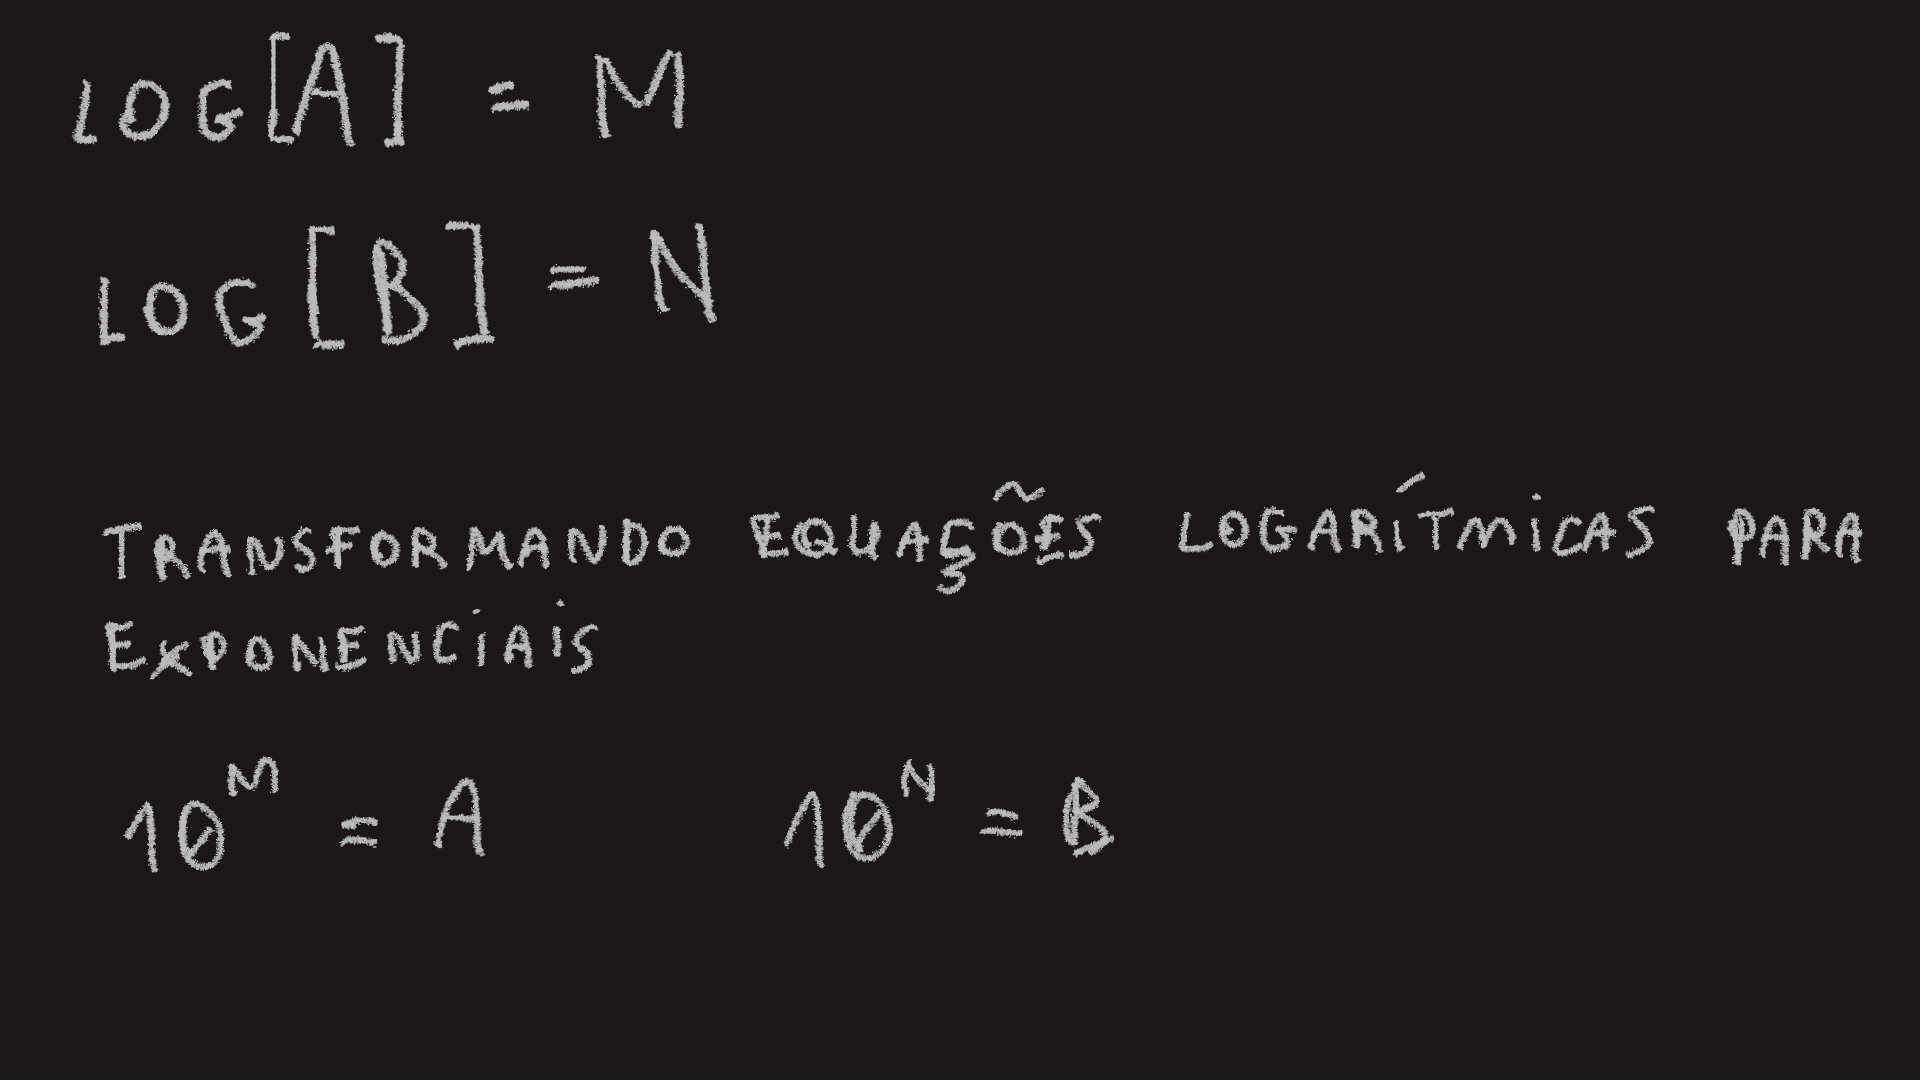 LOG[A] = M
LOG[B] = N
TRANSFORMANDO EQUAÇÕES LOGARÍTMICAS PARA
EXPONENCIAIS
10^M = A 10^N = B